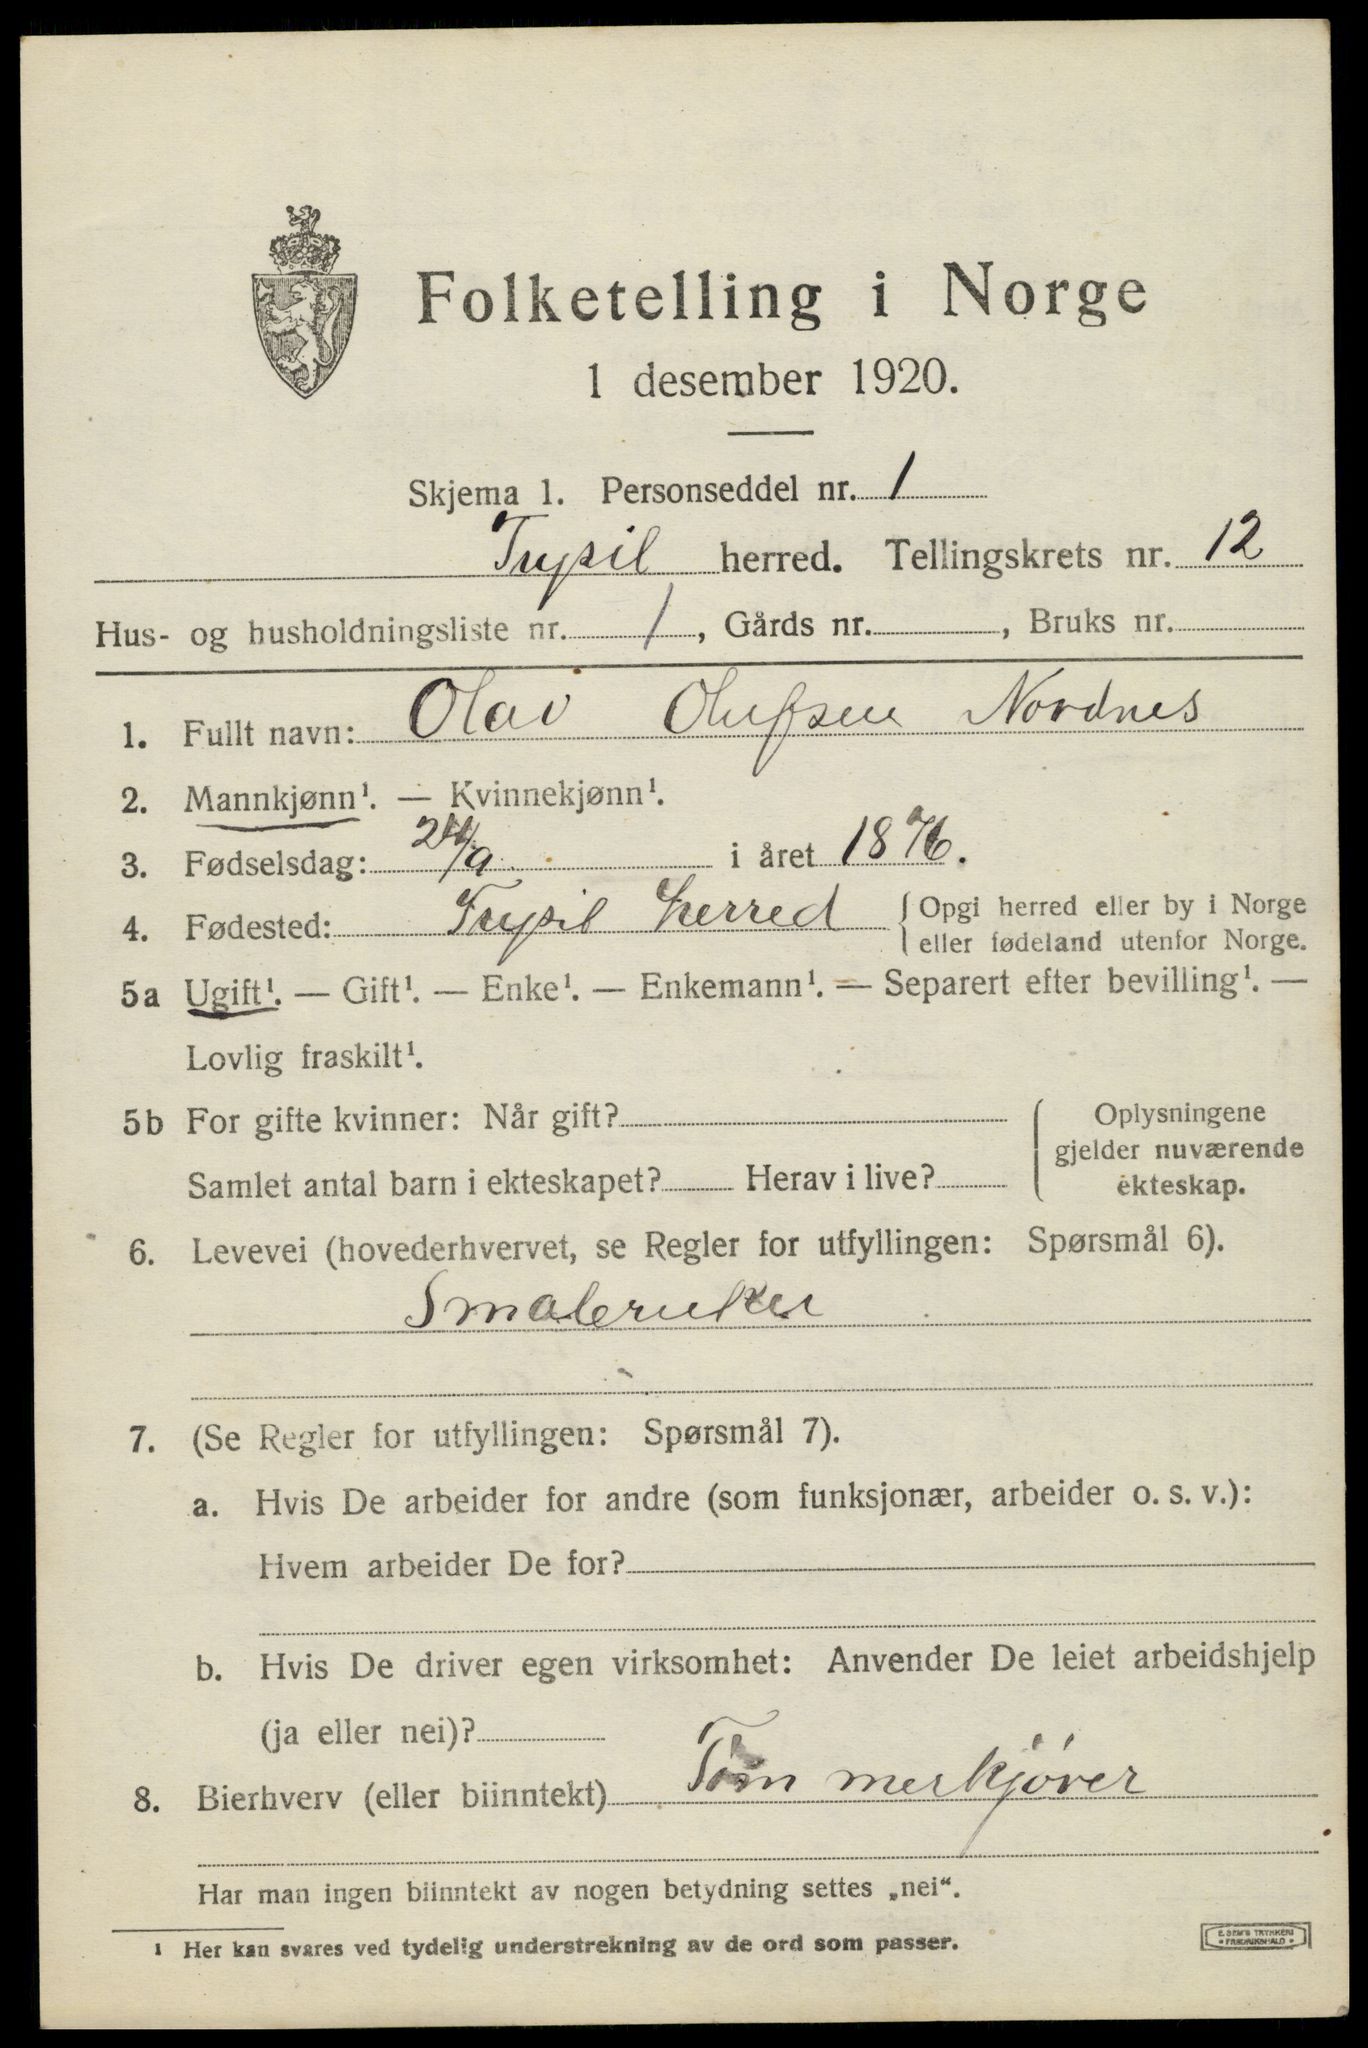 Folketelling i Norge
1 desember 1920.
Skjema 1. Personseddel nr. 1
Trysil herred. Tellingskrets nr. 12
Hus- og husholdningsliste nr. 1, Gårds nr. , Bruks nr.
1. Fullt navn: Olav Olufsen Nordnes
2. Mannkjønn¹. — Kvinnekjønn¹.
3. Fødselsdag: 24/9 i året 1876.
4. Fødested: Trysil herred { Opgi herred eller by i Norge
eller fødeland utenfor Norge.
5a Ugift¹. — Gift¹. — Enke¹. — Enkemann¹. — Separert efter bevilling¹. —
Lovlig fraskilt¹.
5b For gifte kvinner: Når gift? { Oplysningene
gjelder nuværende
Samlet antal barn i ekteskapet? Herav i live? ekteskap.
6. Levevei (hovederhvervet, se Regler for utfyllingen: Spørsmål 6).
Småbruker
7. (Se Regler for utfyllingen: Spørsmål 7).
a. Hvis De arbeider for andre (som funksjonær, arbeider o. s. v.):
Hvem arbeider De for?
b. Hvis De driver egen virksomhet: Anvender De leiet arbeidshjelp
(ja eller nei)?
8. Bierhverv (eller biinntekt) Tømmerkjører
Har man ingen biinntekt av nogen betydning settes „nei“.
¹ Her kan svares ved tydelig understrekning av de ord som passer.
E. SEM'S TRYKKERI
• FREDRIKSHALD •